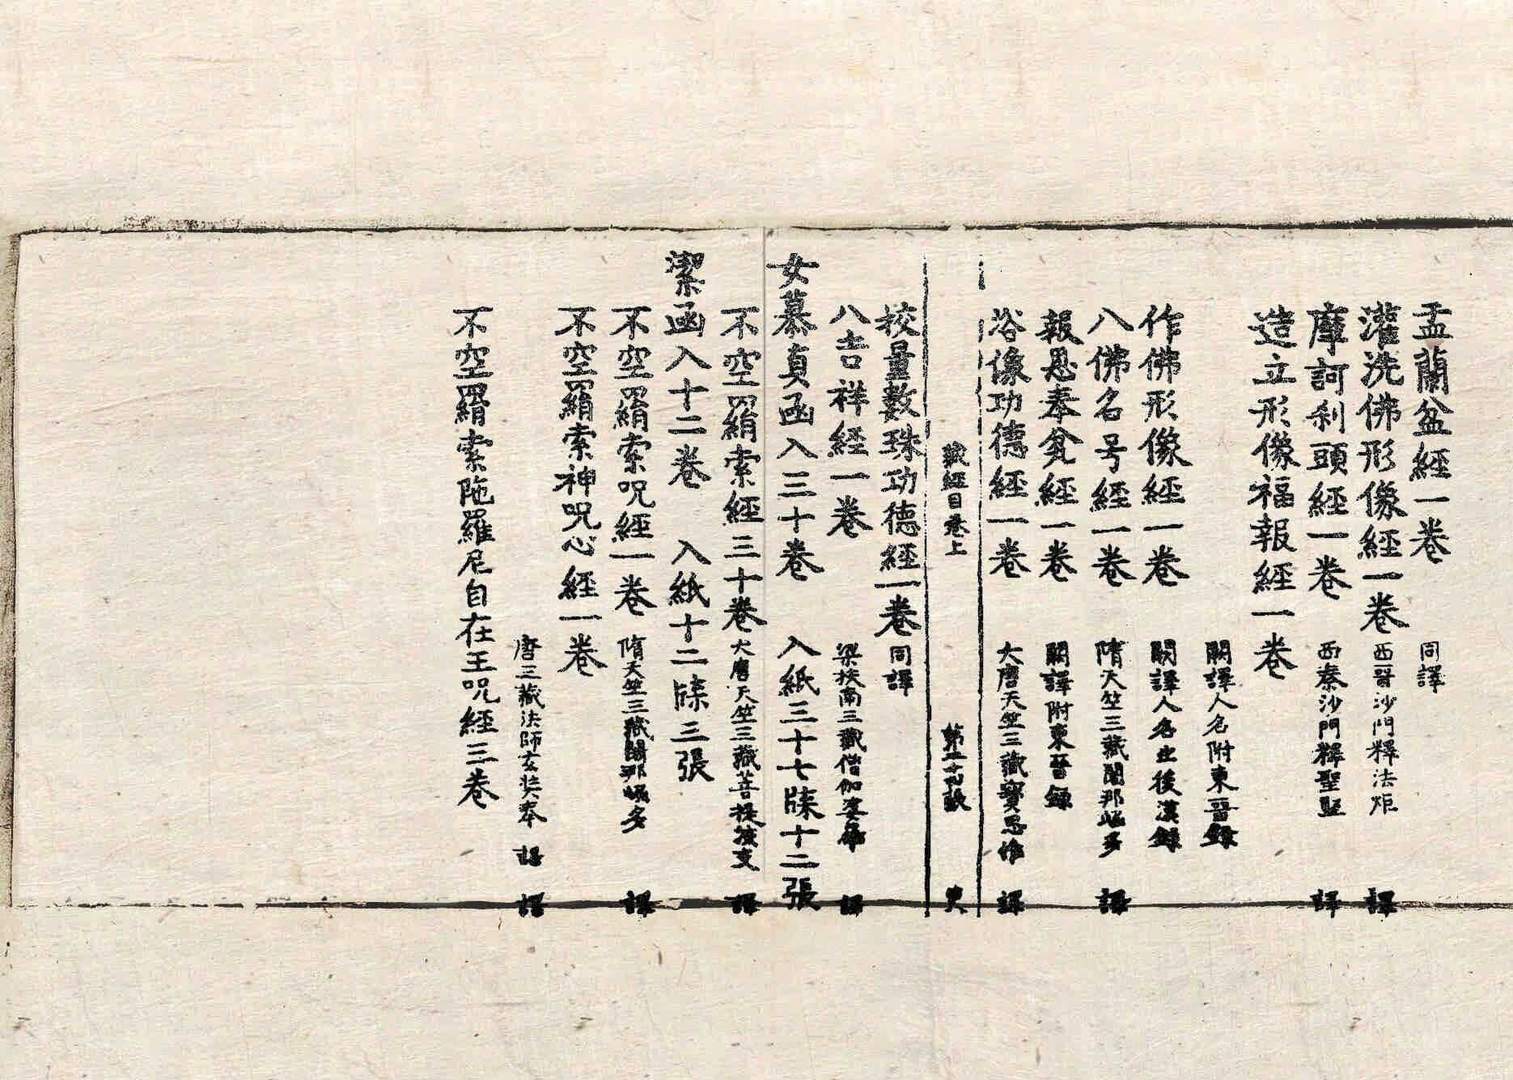 盂蘭盆經一卷 同譯
灌洗佛形像經一卷 西晉沙門釋法炬 譯
摩訶利頭經一卷 西秦沙門釋聖堅 譯
造立形像福報經一卷
闕譯人名附東晉錄
作佛形像經一卷 闕譯人名出後漢錄
八佛名号經一卷 隋天竺三藏闍那崛多 譯
報恩奉瓫經一卷 闕譯附東晉錄
浴像功德經一卷 大唐天竺三藏寶思惟 譯
藏經目卷上 第 張
校量數珠功德經一卷 同譯
八吉祥經一卷 梁扶南三藏僧伽婆羅 譯
女慕真函入三十卷 入紙三十七牒十二張
不空羂索經三十卷 大唐天竺三藏菩提流支 譯
潔函入十二卷 入紙十二牒三張
不空羂索呪經一卷 隋天竺三藏闍那崛多 譯
不空羂索神呪心經一卷
唐三藏法師玄奘奉 詔 譯
不空羂索陁羅尼自在王呪經三卷